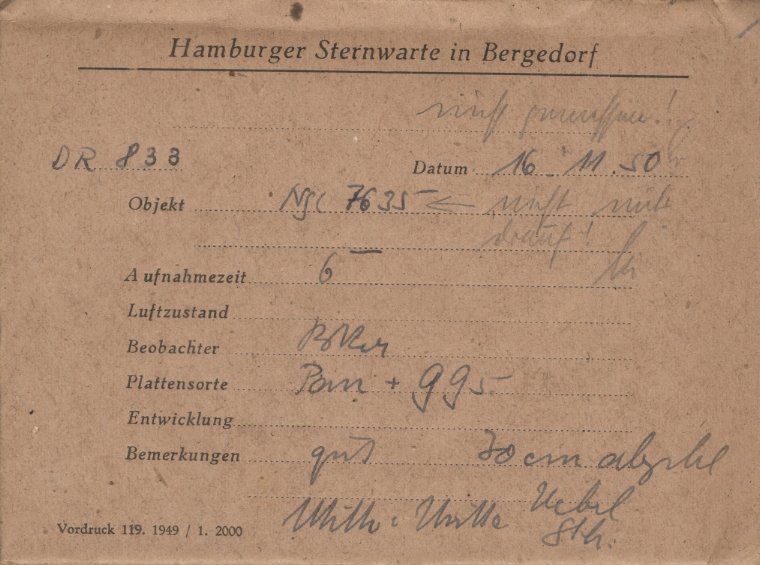 Hamburger Sternwarte in Bergedorf
nicht gemessen!
DR 833 Datum 16 11.50
Objekt Ngc 7635 ← nicht mit
drauf!
Aufnahmezeit 6
Luftzustand
Beobachter
Plattensorte Pan + 995
Entwicklung
Bemerkungen gut 70 cm
Vordruck 119. 1949 / 1. 2000